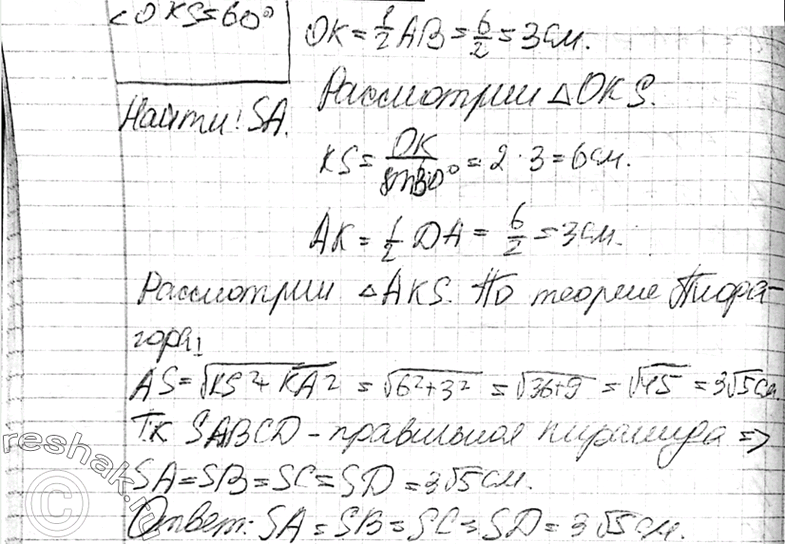 <OKS=60°
OK = 1/2 AB = 6/2 = 3 см.
Найти: SA.
Рассмотрим △OKS.
KS = OK/sin30° = 2 · 3 = 6 см.
AK = 1/2 DA = 6/2 = 3 см.
Рассмотрим △AKS. По теореме Пифа-
гора:
AS = √KS²+KA² = √6²+3² = √36+9 = √45 = 3√5 см.
Тк SABCD - правильная пирамида =>
SA = SB = SC = SD = 3√5 см.
Ответ: SA = SB = SC = SD = 3√5 см.
reshak.ru
©